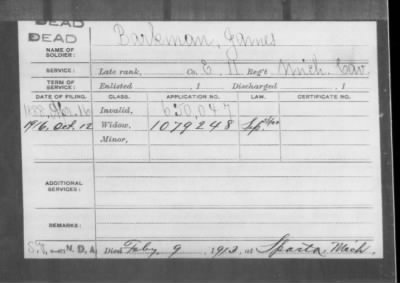 DEAD
DEAD
Barkman, James
NAME OF SOLDIER:
SERVICE: Late rank, Co. E 11 Reg't Mich. Cav.
TERM OF SERVICE: Enlisted , 1 Discharged , 1
DATE OF FILING. CLASS. APPLICATION NO. LAW. CERTIFICATE NO.
Invalid, 650,047
1916, Oct. 12 Widow, 1079248
Minor,
ADDITIONAL SERVICES:
REMARKS:
N.D.A. Died Feby 9 1913, at Sparta Mich.